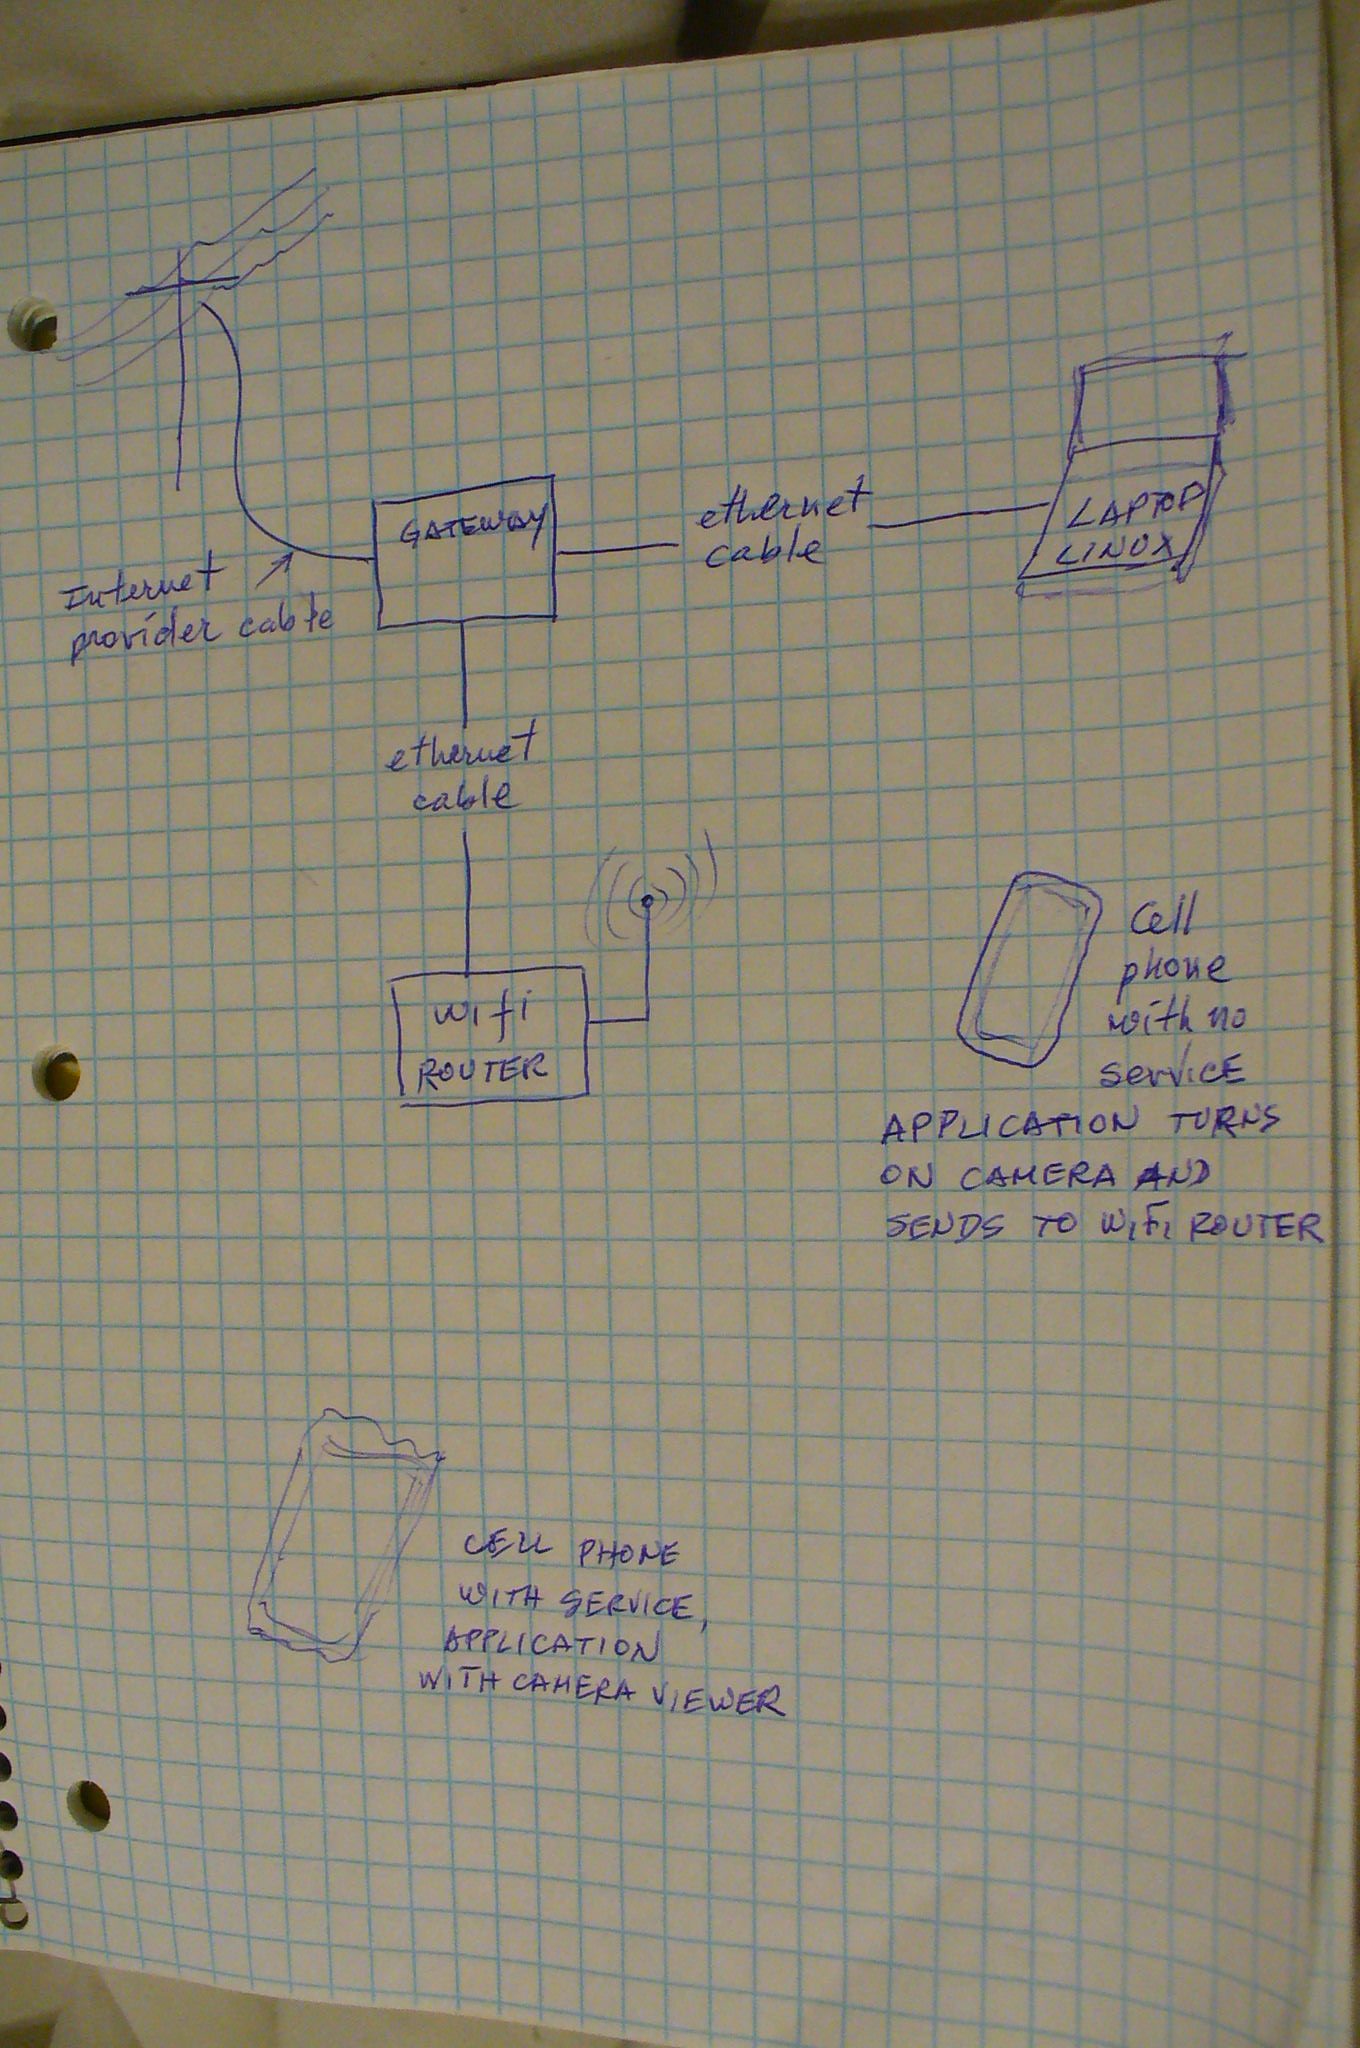 GATEWAY
Internet
provider cable
ethernet
cable
LAPTOP
LINUX
ethernet
cable
wifi
ROUTER
Cell
phone
with no
service
APPLICATION TURNS
ON CAMERA AND
SENDS TO WIFI ROUTER
CELL PHONE
WITH SERVICE,
APPLICATION
WITH CAMERA VIEWER